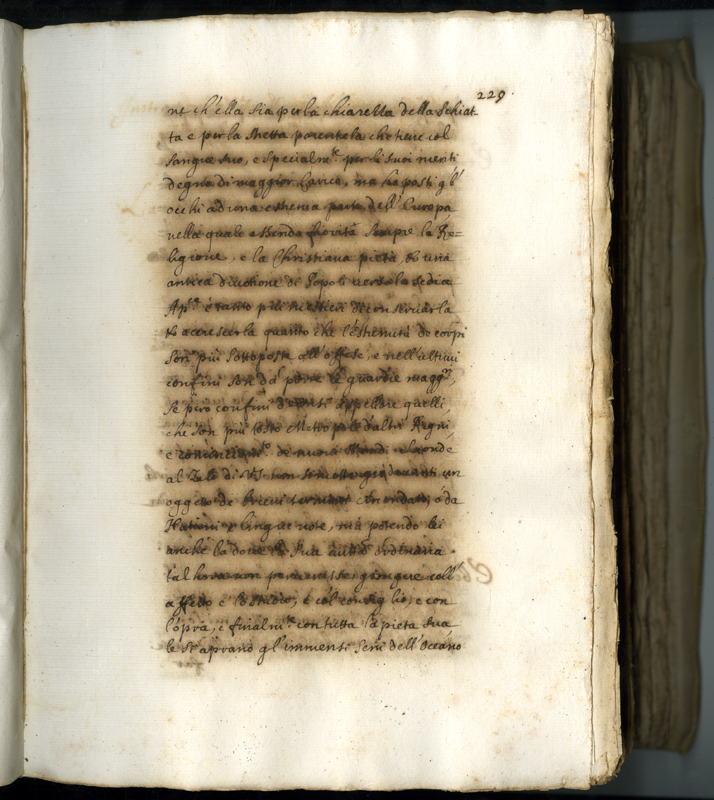 229.
ne ch'ella sia per la chiarezza della schiat-
ta e per la stretta parentela che tiene col
sangue suo, e specialm.te per li suoi meriti
degna di maggior Carico, ma ha posti gl'
occhi ad una estrema parte dell'Europa
nella quale essendo fiorita sempre la Re=
ligione, e la Christiana pietà, et una
antica divotione de Popoli verso la sedia
Ap.ca è tanto più mestieri di conservarla
et accrescerla quanto che l'estremità de corpi
son più sottoposte all'offese, e nell'ultimi
confini son da porre le guardie magg.ri,
se però confini si appellare quelli,
che son più tosto Metropole d'altri Regni,
e de nuovi Mondi
al Zelo di V.S. non si mette già davanti un
oggetto de brevi termini circondato, ò da
Nationi e lingue note, mà potendo lei
anche là dove la sua autt.tà ordinaria
tal hora non pervenisse, giungere coll'
affetto e lo studio, e col consiglio, e con
l'opra, e finalm.te con tutta la pietà sua
le st'aprano gl'immensi seni dell'Oceano